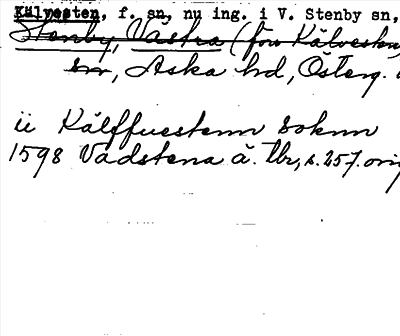 Kälvesten, f. sn, nu ing. i V. Stenby sn,
Stenby, Västra (förr Kälvesten
sn, Aska hd, Österg.
ü Kälffuestenn soknn
1598 Vadstena ä. tbr, s. 257. orig